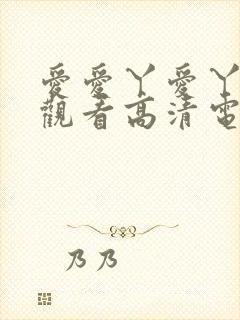 愛愛丫愛丫
觀看高清電
乃乃